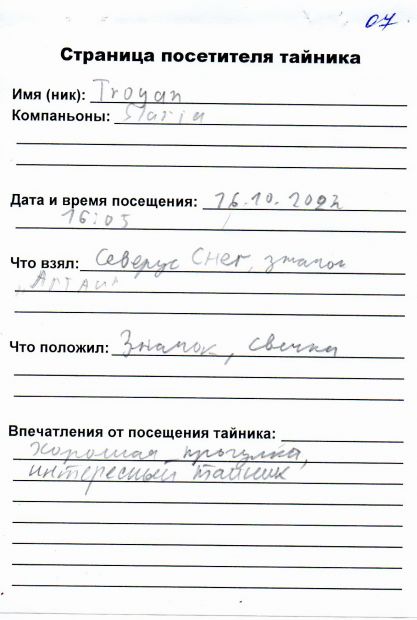 07
Страница посетителя тайника
Имя (ник): Troyan
Компаньоны: Slaria
Дата и время посещения: 16.10.2022
16:05
Что взял: Северус Снег, значок
"Алтай"
Что положил: Значок, свечки
Впечатления от посещения тайника:
хорошая прогулка,
интересный тайник